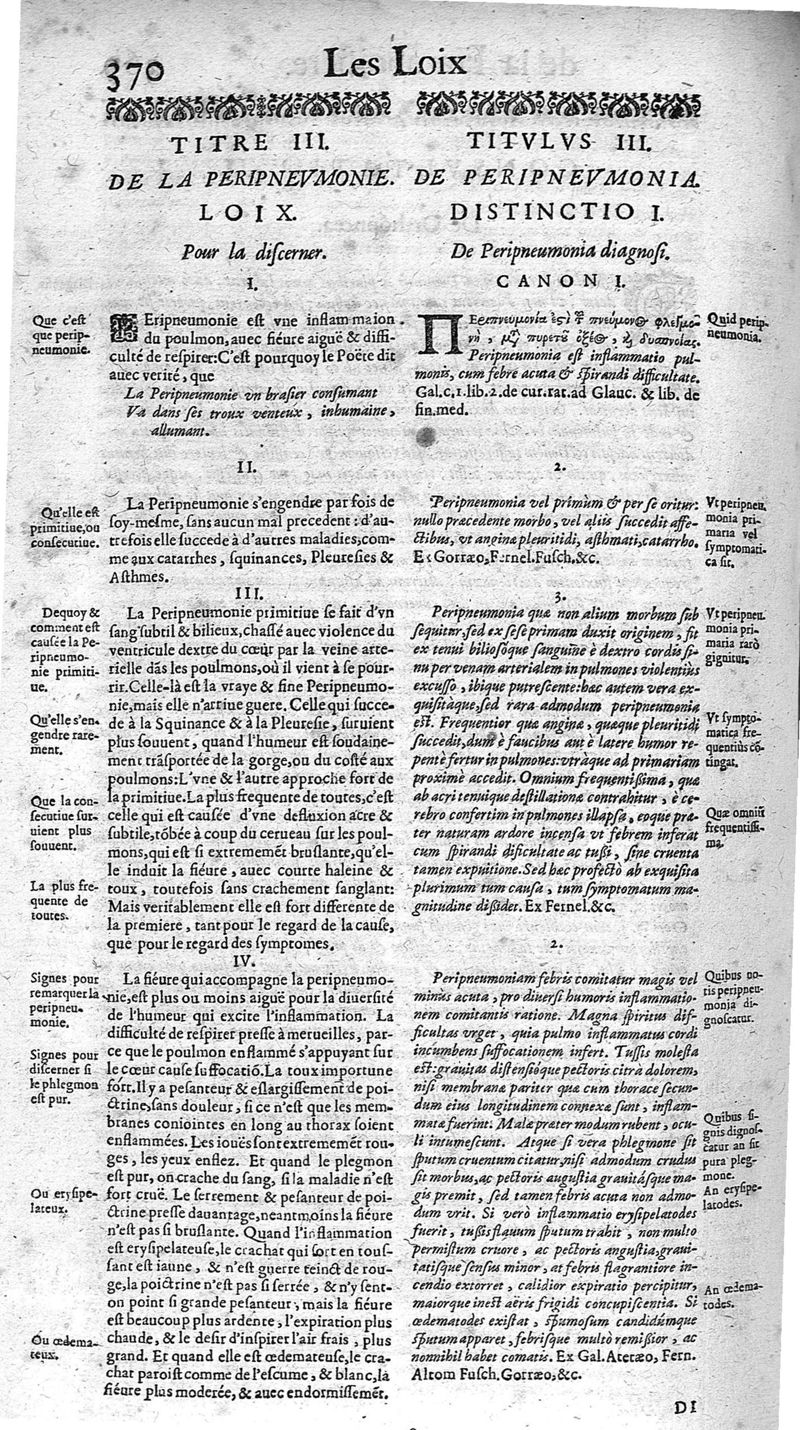 370
Les Loix
TITRE III.
DE LA PERIPNEVMONIE.
LOIX.
Pour la discerner.
I.
Que c'est
que perip-
neumonie.
PEripneumonie est vne inflam maion
du poulmon, auec fiéure aiguë & diffi-
culté de respirer: C'est pourquoy le Poëte dit
auec verité, que
La Peripneumonie vn brasier consumant
Va dans ses troux venteux, inhumaine,
allumant.
II.
Qu'elle est
primitiue, ou
consecutiue.
La Peripneumonie s'engendre par fois de
soy-mesme, sans aucun mal precedent: d'au-
tre fois elle succede à d'autres maladies, com-
me aux catarrhes, squinances, Pleuresies &
Asthmes.
III.
Dequoy &
comment est
causée la Pe-
ripneumo-
nie primiti-
ue.
Qu'elle s'en-
gendre rare-
ment.
Que la con-
secutiue sur-
uient plus
souuent.
La plus fre-
quente de
toutes.
La Peripneumonie primitiue se fait d'vn
sang subtil & bilieux, chassé auec violence du
ventricule dextre du cœur par la veine arte-
rielle dãs les poulmons, où il vient à se pour-
rir. Celle-là est la vraye & fine Peripneumo-
nie, mais elle n'arriue guere. Celle qui succe-
de à la Squinance & à la Pleuresie, suruient
plus souuent, quand l'humeur est soudaine-
ment trãsportée de la gorge, ou du costé aux
poulmons: L'vne & l'autre approche fort de
la primitiue. La plus frequente de toutes, c'est
celle qui est causée d'vne defluxion acre &
subtile, tõbée à coup du cerueau sur les poul-
mons, qui est si extrememẽt bruslante, qu'el-
le induit la fiéure, auec courte haleine &
toux, toutefois sans crachement sanglant:
Mais veritablement elle est fort differente de
la premiere, tant pour le regard de la cause,
que pour le regard des symptomes.
IV.
Signes pour
remarquer la
peripneu-
monie.
Signes pour
discerner si
le phlegmon
est pur.
Ou erysipe-
lateux.
Ou œdema-
teux.
La fiéure qui accompagne la peripneumo-
nie, est plus ou moins aiguë pour la diuersité
de l'humeur qui excite l'inflammation. La
difficulté de respirer presse à merueilles, par-
ce que le poulmon enflammé s'appuyant sur
le cœur cause suffocatiõ. La toux importune
fort. Il y a pesanteur & eslargissement de poi-
ctrine, sans douleur, si ce n'est que les mem-
branes conjointes en long au thorax soient
enflammées. Les iouës sont extrememẽt rou-
ges, les yeux enflez. Et quand le plegmon
est pur, on crache du sang, si la maladie n'est
fort cruë. Le serrement & pesanteur de poi-
ctrine presse dauantage, neantmoins la fiéure
n'est pas si bruslante. Quand l'inflammation
est erysipelateuse, le crachat qui sort en tous-
sant est iaune, & n'est guerre teinct de rou-
ge, la poictrine n'est pas si serrée, & n'y sent-
on point si grande pesanteur, mais la fiéure
est beaucoup plus ardente, l'expiration plus
chaude, & le desir d'inspirer l'air frais, plus
grand. Et quand elle est œdemateuse, le cra-
chat paroist comme de l'escume, & blanc, là
fiéure plus moderée, & auec endormissemẽt.
TITVLVS III.
DE PERIPNEVMONIA.
DISTINCTIO I.
De Peripneumonia diagnosi.
CANON I.
Quid perip-
neumonia.
ΠΕριπνευμονία ἐςὶ τ̃ πνεύμονος φλεγμο-
νὴ, μζ πυρετοῦ ὀξέος, ϗ δυσπνοίας.
Peripneumonia est inflammatio pul-
monis, cum febre acuta & spirandi difficultate.
Gal. c. 1. lib. 2. de cur. rat. ad Glauc. & lib. de
fin. med.
2.
Vt peripneu.
monia pri-
maria vel
symptomati-
ca sit.
Peripneumonia vel primùm & per se oritur:
nullo præcedente morbo, vel aliis succedit affe-
ctibus, vt anginæ pleuritidi, asthmati, catarrho.
Ex Gorræo, Fernel. Fusch. &c.
3.
Vt peripneu.
monia pri-
maria rarò
gignitur.
Vt sympto-
matica fre-
quentiùs cõ-
tingat.
Quæ omniũ
frequentissi-
ma.
Peripneumonia quæ non alium morbum sub
sequitur, sed ex sese primam duxit originem, fit
ex tenui bilioséque sanguine è dextro cordis si-
nu per venam arterialem in pulmones violentiùs
excusso, ibique putrescente: hæc autem vera ex-
quisitáque, sed rara admodum peripneumonia
est. Frequentior quæ anginæ, quæque pleuritidi
succedit, dum è faucibus aut è latere humor re-
pentè fertur in pulmones: vtráque ad primariam
proximè accedit. Omnium frequentissima, quæ
ab acri tenuique destillatione contrahitur, è ce-
rebro confertim in pulmones illapsa, eoque præ-
ter naturam ardore incensa vt febrem inferat
cum spirandi dificultate ac tussi, sine cruenta
tamen expuitione. Sed hæc profectò ab exquisita
plurimum tum causa, tum symptomatum ma-
gnitudine dissidet. Ex Fernel. &c.
2.
Quibus no-
tis peripneu-
monia di-
gnoscatur.
Quibus si-
gnis dignos-
catur an sit
pura pleg-
mone.
An erysipe-
latodes.
An œdema-
todes.
Peripneumoniam febris comitatur magis vel
minus acuta, pro diuersi humoris inflammatio-
nem comitantis ratione. Magna spiritus dif-
ficultas vrget, quia pulmo inflammatus cordi
incumbens suffocationem infert. Tussis molesta
est: grauitas distensióque pectoris citrà dolorem,
nisi membranæ pariter quæ cum thorace secun-
dum eius longitudinem connexæ sunt, inflam-
matæ fuerint: Malæ præter modum rubent, ocu-
li intumescunt. Atque si vera phlegmone sit
sputum cruentum citatur, nisi admodum crudus
sit morbus, ac pectoris angustia grauitásque ma-
gis premit, sed tamen febris acuta non admo-
dum vrit. Si verò inflammatio erysipelatodes
fuerit, tussis flauum sputum trahit, non multo
permistum cruore, ac pectoris angustia, graui-
tatisque sensus minor, at febris flagrantiore in-
cendio extorret, calidior expiratio percipitur,
maiorque inest aëris frigidi concupiscentia. Si
œdematodes existat, spumosum candidúmque
sputum apparet, febrisque multò remissior, ac
nonnihil habet comatis. Ex Gal. Atetæo, Fern.
Altom Fusch. Gorræo, &c.
DI